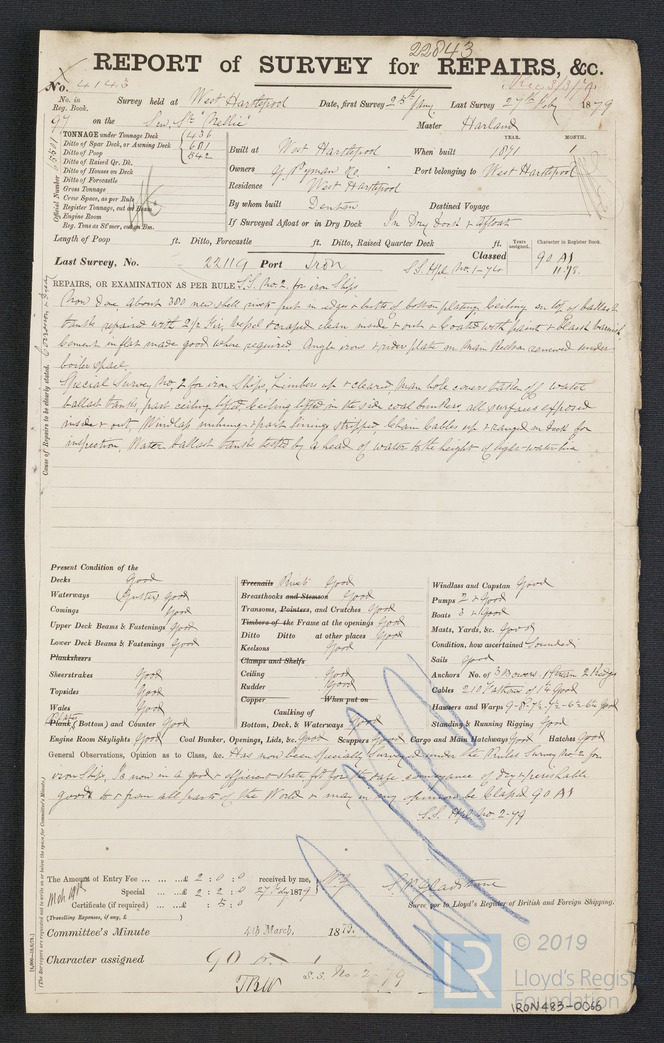 22843
REPORT of SURVEY for REPAIRS, &c.
No. 4143
No. in Reg. Book. Survey held at West Hartlepool Date, first Survey 25th Jany. Last Survey 27th Feby 1879
97 on the Sew. Sr. "Nellie" Master Harland
TONNAGE under Tonnage Deck 436
Ditto of Spar Deck, or Awning Deck 601
Ditto of Poop 842
Ditto of Raised Qr. Dk.
Ditto of Houses on Deck
Ditto of Forecastle
Gross Tonnage
Crew Space, as per Rule
Register Tonnage, cut on Beam
Engine Room
Reg. Tons as St'mer, cut on Bm.
Official Number
Built at West Hartlepool When built 1871 YEAR. MONTH. 1
Owners G. Pyman Co. Port belonging to West Hartlepool
Residence West Hartlepool
By whom built Denton Destined Voyage
If Surveyed Afloat or in Dry Dock In Dry dock & afloat
Length of Poop ft. Ditto, Forecastle ft. Ditto, Raised Quarter Deck ft.
Years assigned. Character in Register Book.
Last Survey, No. 22119 Port Iron Classed 90 A1
S.S. Hpl. No. 1-74 11.78
Cause of Repairs to be clearly stated.
REPAIRS, OR EXAMINATION AS PER RULE S.S. No. 2. for iron Ships
Now done about 300 new shell rivets put in edges & butts of bottom plating, Ceiling on top of ballast
tanks repaired with 2½ Fir, Vessel scraped clean inside & out & Coated with paint & Black varnish
Cement in flat made good where required. Angle irons & rider plate on Main Keelson renewed under
boiler space.
Special Survey No. 2 for iron Ships, Limbers up & cleared, Man hole covers taken off water
ballast tanks, part ceiling lifted, Ceiling lifted in the side coal bunkers, all surfaces exposed
inside & out, Windlass unhung & part lining stripped, Chain Cables up & ranged on deck for
inspection, Water ballast tanks tested by a head of water to the height of light-water line
Present Condition of the
Decks Good
Waterways (Gutter) good
Comings Good
Upper Deck Beams & Fastenings Good
Lower Deck Beams & Fastenings Good
Planksheers
Sheerstrakes Good
Topsides Good
Wales Good
Plates
Plank (Bottom) and Counter Good
Engine Room Skylights Good
Treenails Rivets Good
Breasthooks and Stemson Good
Transoms, Pointers, and Crutches Good
Timbers of the Frame at the openings Good
Ditto Ditto at other places Good
Keelsons Good
Clamps and Shelfs
Ceiling Good
Rudder Good
Copper When put on
Caulking of
Bottom, Deck, & Waterways Good
Coal Bunker, Openings, Lids, &c. Good Scuppers Good
Windlass and Capstan Good
Pumps 2 & Good
Boats 3 & Good
Masts, Yards, &c. Good
Condition, how ascertained Sounded
Sails Good
Anchors No. of 3 Bowers 1 Stream 2 Kedges
Cables 210 Fathoms of 1⅜ Good
Hawsers and Warps Good
Standing & Running Rigging Good
Cargo and Main Hatchways Good Hatches Good
General Observations, Opinion as to Class, &c. Has now been specially Surveyed under the Rules Survey No. 2 for
iron Ships, Is now in a good & efficient state fit for the safe conveyance of dry & perishable
goods to & from all parts of the World & may in my opinion be Classed 90 A1
S.S. Hpl. No. 2-79
The Amount of Entry Fee ... £ 2 : 0 : 0 received by me,
Special ... £ 2 : 2 : 0 27 Feby 1879
Certificate (if required) ... £ : 5 : 0
(Travelling Expenses, if any, £ )
Surveyor to Lloyd's Register of British and Foreign Shipping.
Committee's Minute 4th March, 1879.
Character assigned 90 A 1
S.S. No 2-79
© 2019
LR
Lloyd's Register
Foundation
IRON483-0066